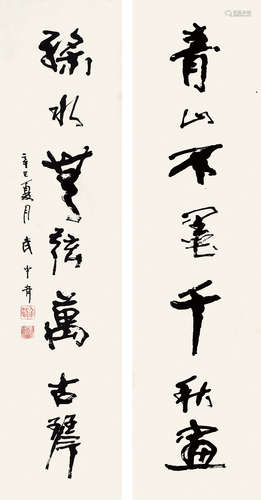 青山不墨千秋画
绿水无弦万古琴
辛巳夏月武中奇